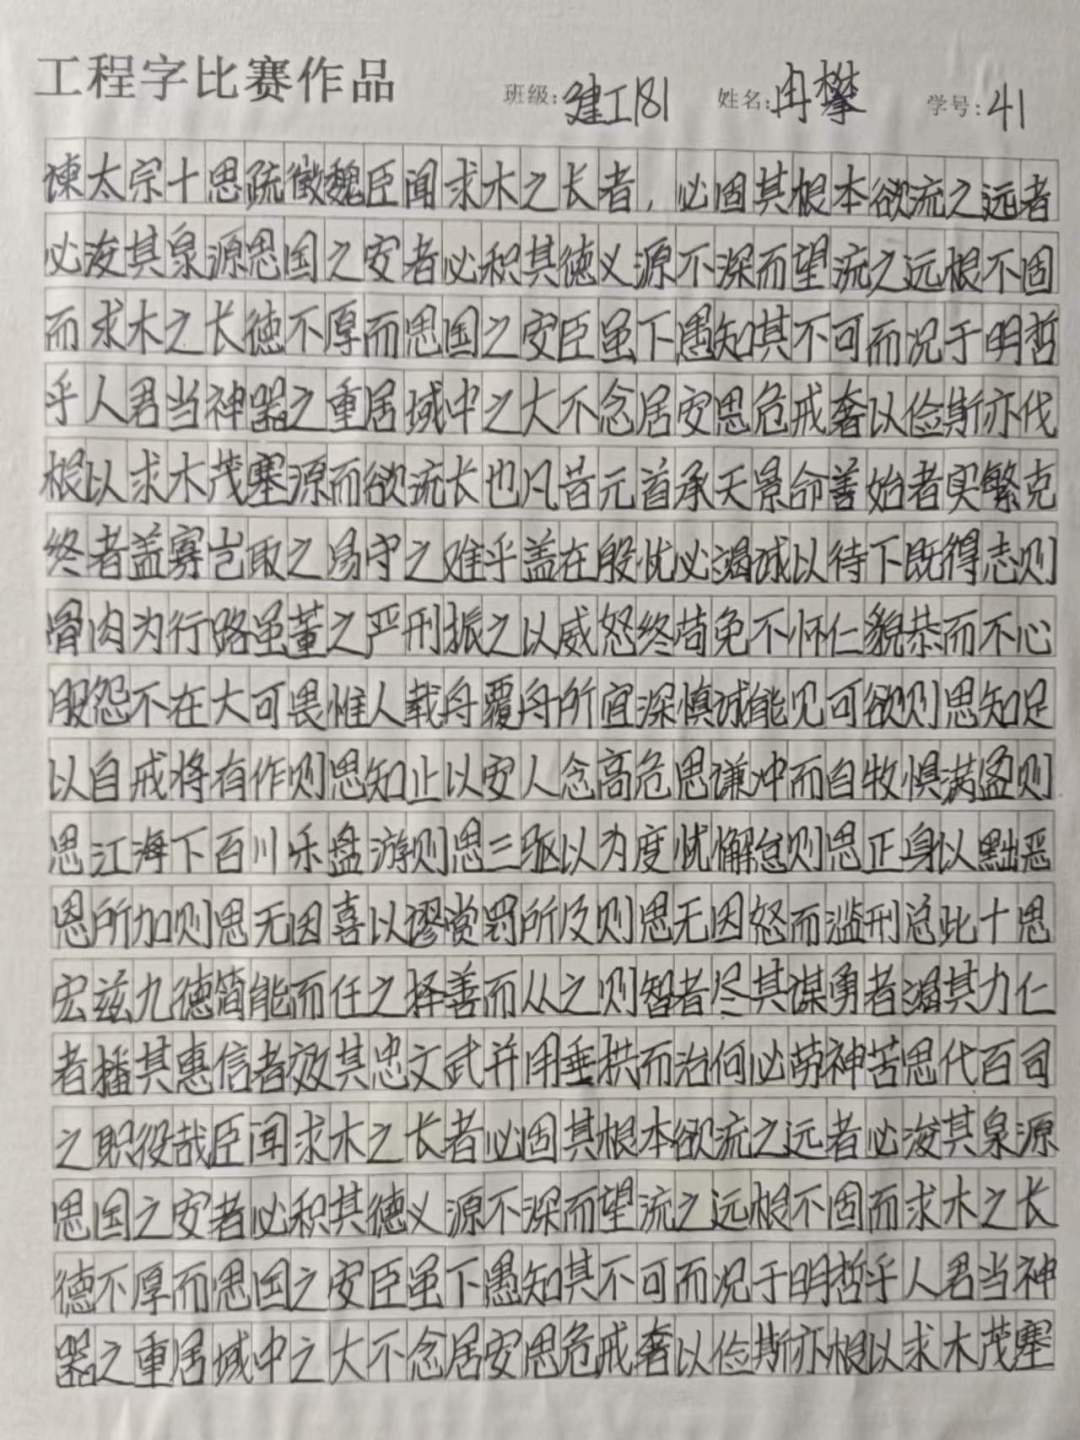 工程字比赛作品 班级:建工181 姓名:冉攀 学号:41
谏太宗十思疏徵魏臣闻求木之长者，必固其根本欲流之远者
必浚其泉源思国之安者必积其德义源不深而望流之远根不固
而求木之长德不厚而思国之安臣虽下愚知其不可而况于明哲
乎人君当神器之重居域中之大不念居安思危戒奢以俭斯亦伐
根以求木茂塞源而欲流长也凡昔元首承天景命善始者实繁克
终者盖寡岂取之易守之难乎盖在殷忧必竭诚以待下既得志则
骨肉为行路虽董之严刑振之以威怒终苟免不怀仁貌恭而不心
服怨不在大可畏惟人载舟覆舟所宜深慎诚能见可欲则思知足
以自戒将有作则思知止以安人念高危思谦冲而自牧惧满盈则
思江海下百川乐盘游则思三驱以为度忧懈怠则思正身以黜恶
恩所加则思无因喜以谬赏罚所及则思无因怒而滥刑总此十思
宏兹九德简能而任之择善而从之则智者尽其谋勇者竭其力仁
者播其惠信者效其忠文武并用垂拱而治何必劳神苦思代百司
之职役哉臣闻求木之长者必固其根本欲流之远者必浚其泉源
思国之安者必积其德义源不深而望流之远根不固而求木之长
德不厚而思国之安臣虽下愚知其不可而况于明哲乎人君当神
器之重居域中之大不念居安思危戒奢以俭斯亦根以求木茂塞